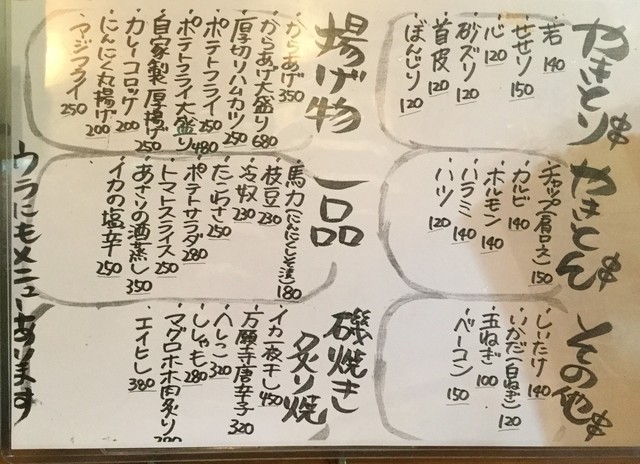 やきとり
若 140
せせり 150
心 120
砂ズリ 120
首皮 120
ぼんじり 120
やきとん
チャップ(肩ロース) 150
カルビ 140
ホルモン 140
ハラミ 140
ハツ 120
その他
しいたけ 140
いかだ(白ねぎ) 120
玉ねぎ 100
ベーコン 150
揚げ物
からあげ 350
からあげ大盛り 680
厚切りハムカツ 250
ポテトフライ 250
ポテトフライ大盛り 480
自家製厚揚げ 250
カレーコロッケ 200
にんにく丸揚げ 200
アジフライ 250
一品
馬力(にんにくしそ漬) 180
枝豆 230
冷奴 230
たこわさ 250
ポテトサラダ 280
トマトスライス 250
あさりの酒蒸し 350
イカの塩辛 250
磯焼き
炙り焼
イカ一夜干し 450
万願寺唐辛子 320
へしこ 320
ししゃも 280
マグロホホ肉炙り
エイヒレ 380
ウラにもメニューあります